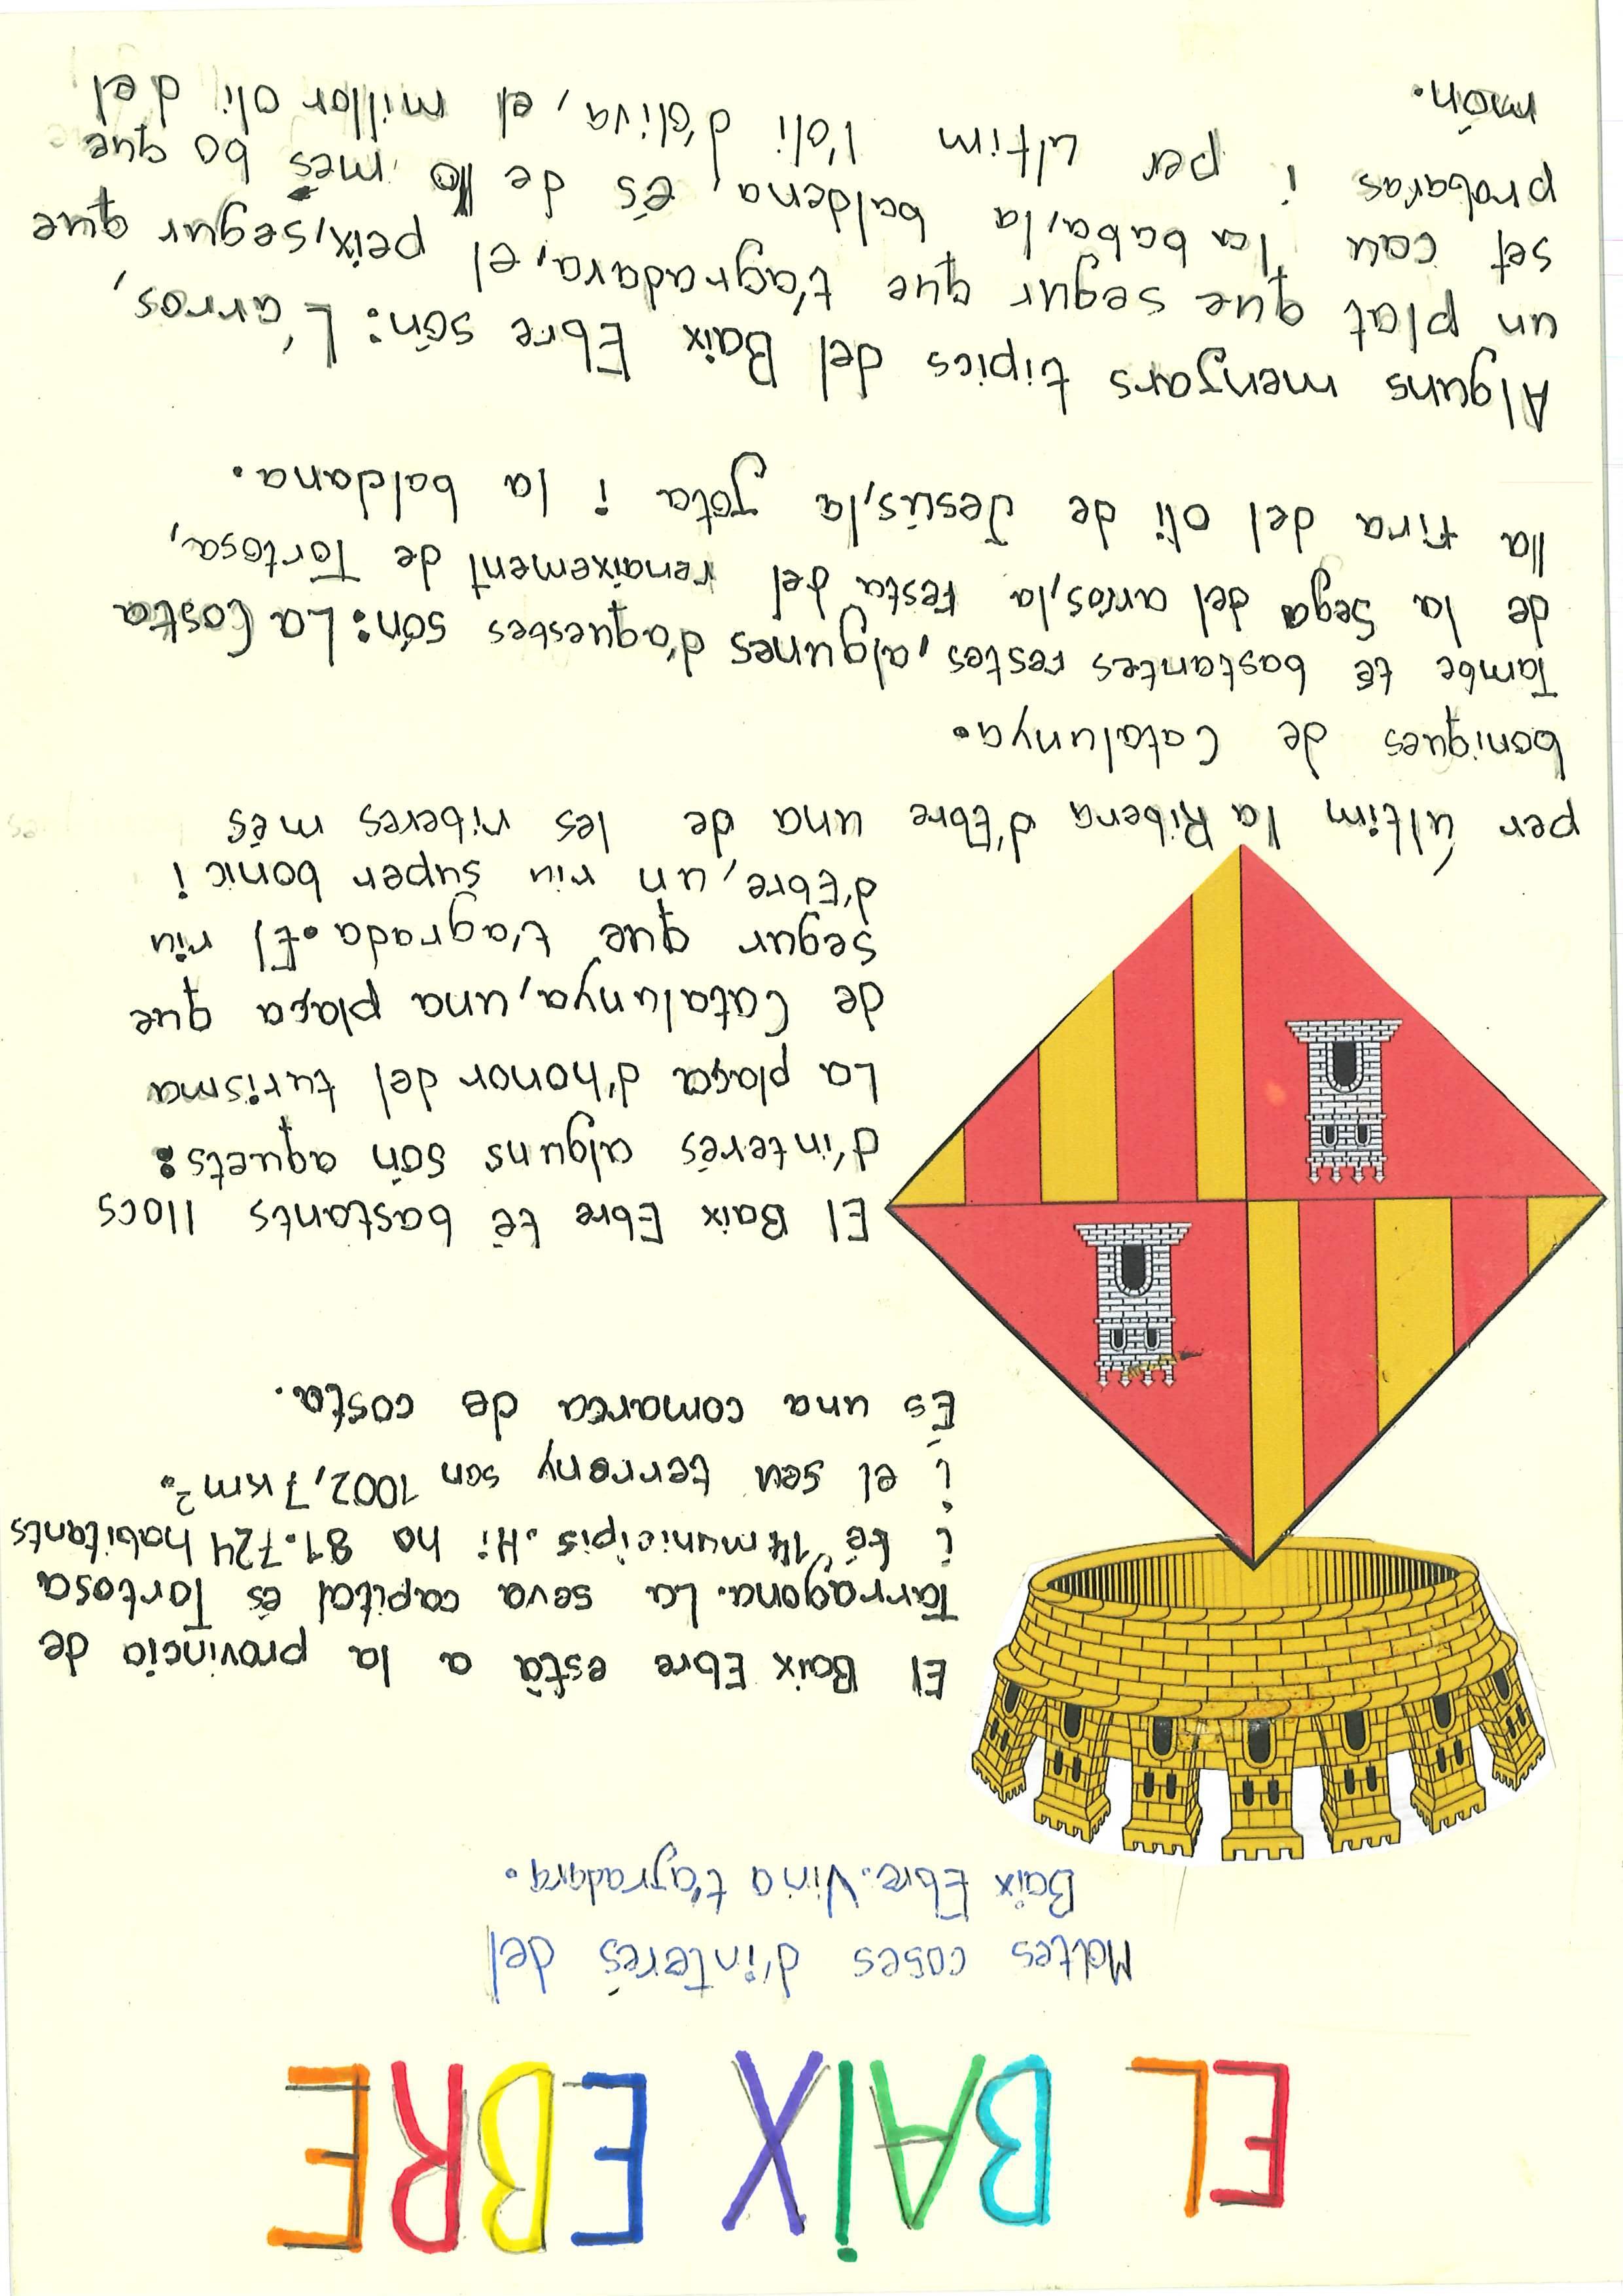 EL BAIX EBRE
Moltes coses d'interés del
Baix Ebre. Vina t'agradara.
El Baix Ebre está a la provincia de
Tarragona. La seva capital és Tortosa
i té 14 municipis. Hi ha 81.724 habitants
i el seu terreny son 1002,7 km².
És una comarca de costa.
El Baix Ebre té bastants llocs
d'interés alguns són aquets:
La plaça d'honor del turisma
de Catalunya, una plaça que
segur que t'agrada. El riu
d'Ebre, un riu super bonic i
per últim la Ribera d'Ebre una de les riberes més
boniques de Catalunya.
Tambe té bastantes festes, algunes d'aquestes són: La Costa
de la Sega del arros, la festa del renaixement de Tortosa,
lla fira del oli de Jesús, la jota i la baldana.
Alguns menjars tipics del Baix Ebre són: L'arros,
un plat que segur que t'agradara, el peix, segur que
set cau la baba, la baldena, és de lo més bo que
probaras i per ultim l'oli d'oliva, el millor oli del
món.